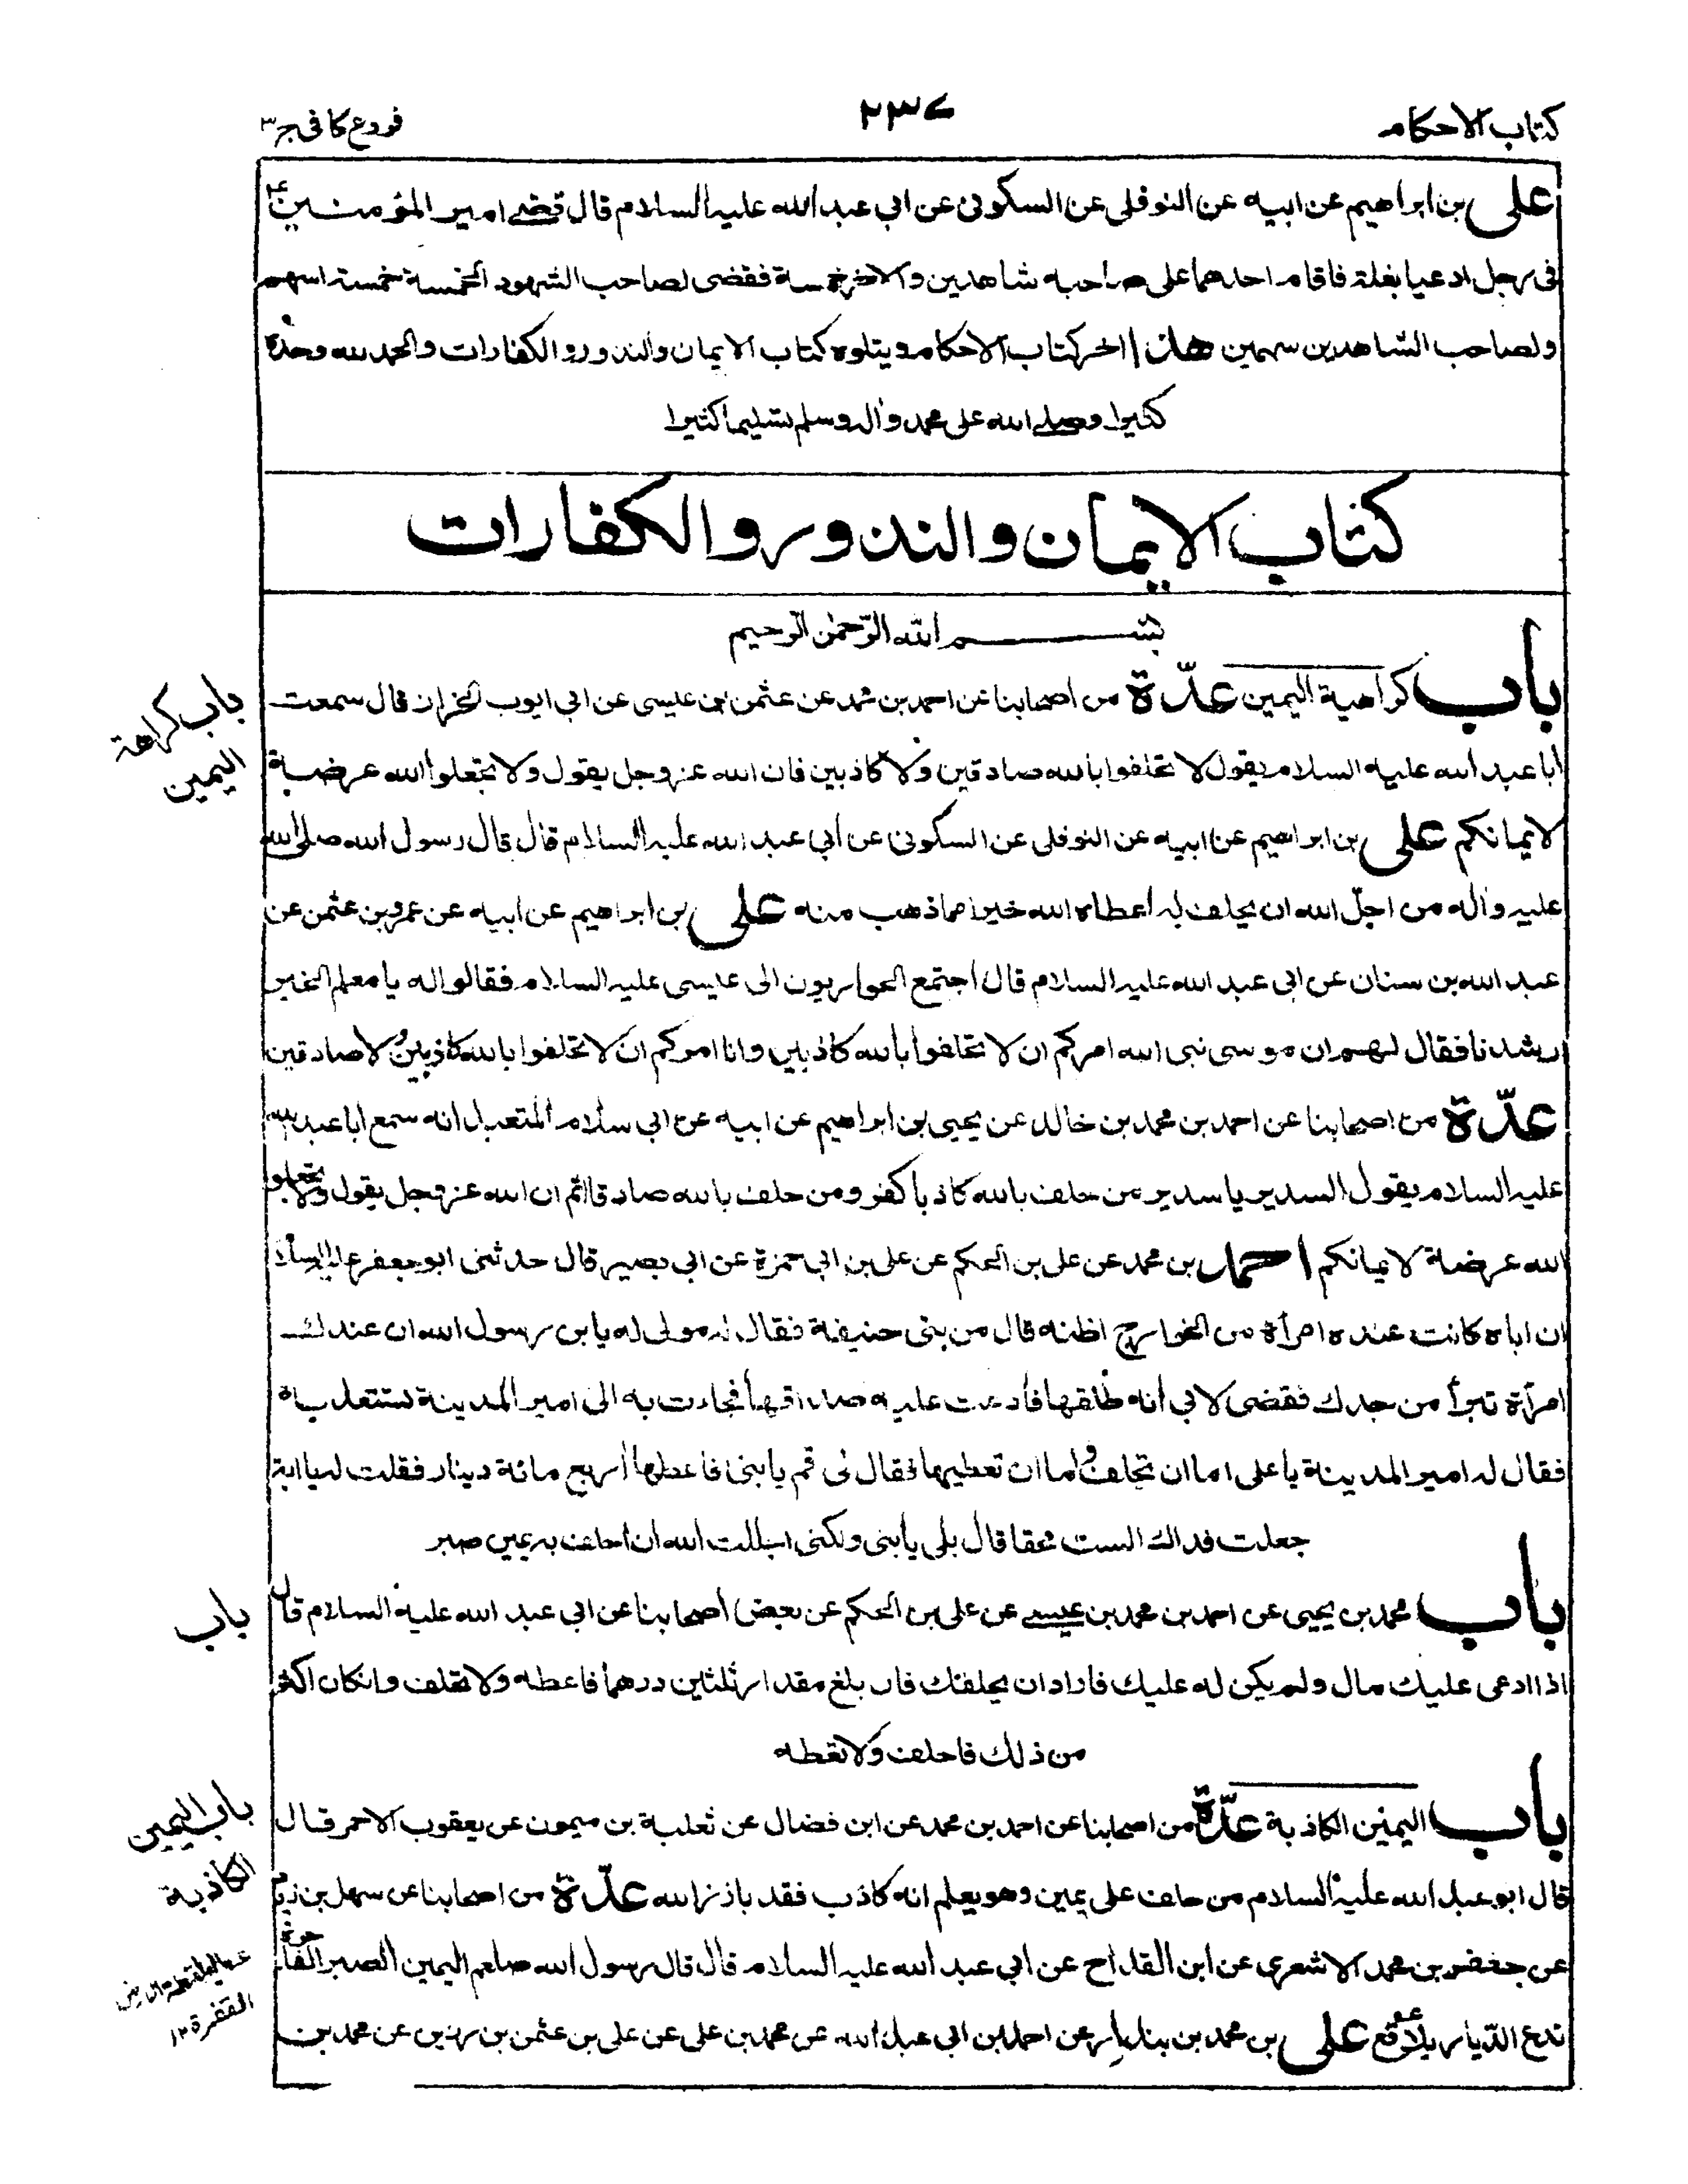 كتاب الاحكام
٢٣٧
فروع كافى جر٣
على بن ابراهيم عن ابيه عن النوفلى عن السكونى عن ابي عبد الله عليه السلام قال قضى امير المؤمنين ع
فى رجل ادعيا بغلة فاقام احدهما على صاحبه شاهدين والاخر خمسة فقضى لصاحب الشهود الخمسة خمسة اسهم
ولصاحب الشاهدين سهمين هذا اخر كتاب الاحكام ويتلوه كتاب الايمان والنذور والكفارات والحمد لله وحده
كثيرا وصلى الله على محمد واله وسلم تسليما كثيرا
كتاب الايمان والنذور والكفارات
بسم الله الرّحمٰن الرّحيم
باب كراهية اليمين عدّة من اصحابنا عن احمد بن محمد عن عثمن بن عيسى عن ابى ايوب الخراز قال سمعت
ابا عبد الله عليه السلام يقول لا تحلفوا بالله صادقين ولا كاذبين فان الله عز وجل يقول ولا تجعلوا الله عرضة
لايمانكم على بن ابراهيم عن ابيه عن النوفلى عن السكونى عن أبي عبد الله عليه السلام قال قال رسول الله صلى الله
عليه وآله من اجلّ الله ان يحلف له اعطاه الله خيرا مما ذهب منه على بن ابراهيم عن ابيه عن عمرو بن عثمن عن
عبد الله بن سنان عن ابى عبد الله عليه السلام قال اجتمع الحواريون الى عيسى عليه السلام فقالوا له يا معلم الخير
ارشدنا فقال لهم ان موسى نبى الله امركم ان لا تحلفوا بالله كاذبين وانا امركم ان لا تحلفوا بالله كاذبين ولا صادقين
عدّة من اصحابنا عن احمد بن محمد بن خالد عن يحيى بن ابراهيم عن ابيه عن ابى سلام المتعبد انه سمع ابا عبد الله
عليه السلام يقول السدير يا سدير من حلف بالله كاذبا كفر ومن حلف بالله صادقا اثم ان الله عز وجل يقول ولا تجعلوا
الله عرضة لايمانكم احمد بن محمد عن على بن الحكم عن على بن ابى حمزة عن ابى بصير قال حدثنى ابو جعفر عليه السلام
ان اباه كانت عنده امرأة من الخوارج اظنه قال من بنى حنيفة فقال له مولى له يا بن رسول الله ان عندك
امرأة تبرأ من جدك فقضى لابى أنه طلقها فأدعت عليه صداقها فجاءت به الى امير المدينة تستعديه
فقال له امير المدينة يا على اما ان تحلف واما ان تعطيها فقال لى قم يا بنى فاعطها اربع مائة دينار فقلت له يا ابة
جعلت فداك الست محقا قال بلى يا بنى ولكنى اجللت الله ان احلف به يمين صبر
باب محمد بن يحيى عن احمد بن محمد بن عيسى عن على بن الحكم عن بعض أصحابنا عن ابى عبد الله عليه السلام قال
اذا ادعى عليك مال ولم يكن له عليك فاراد ان يحلفك فان بلغ مقدار ثلثين درهما فاعطه ولا تحلف وانكان اكثر
من ذلك فاحلف ولا تعطه
باب اليمين الكاذبة عدّة من اصحابنا عن احمد بن محمد عن ابن فضال عن ثعلبة بن ميمون عن يعقوب الاحمر قال
قال ابو عبد الله عليه السلام من حلف على يمين وهو يعلم انه كاذب فقد بارز الله عدّة من اصحابنا عن سهل بن زياد
عن جعفر بن محمد الاشعرى عن ابن القداح عن ابي عبد الله عليه السلام قال قال رسول الله صلعم اليمين الصبر الفاجرة
تدع الدّيار بلاقع على بن محمد بن بندار عن احمد بن ابى عبد الله عن محمد بن على عن على بن عثمن بن رزين عن محمد بن
باب كراهة
اليمين
باب
باب اليمين
الكاذبة
القفرة ١٢